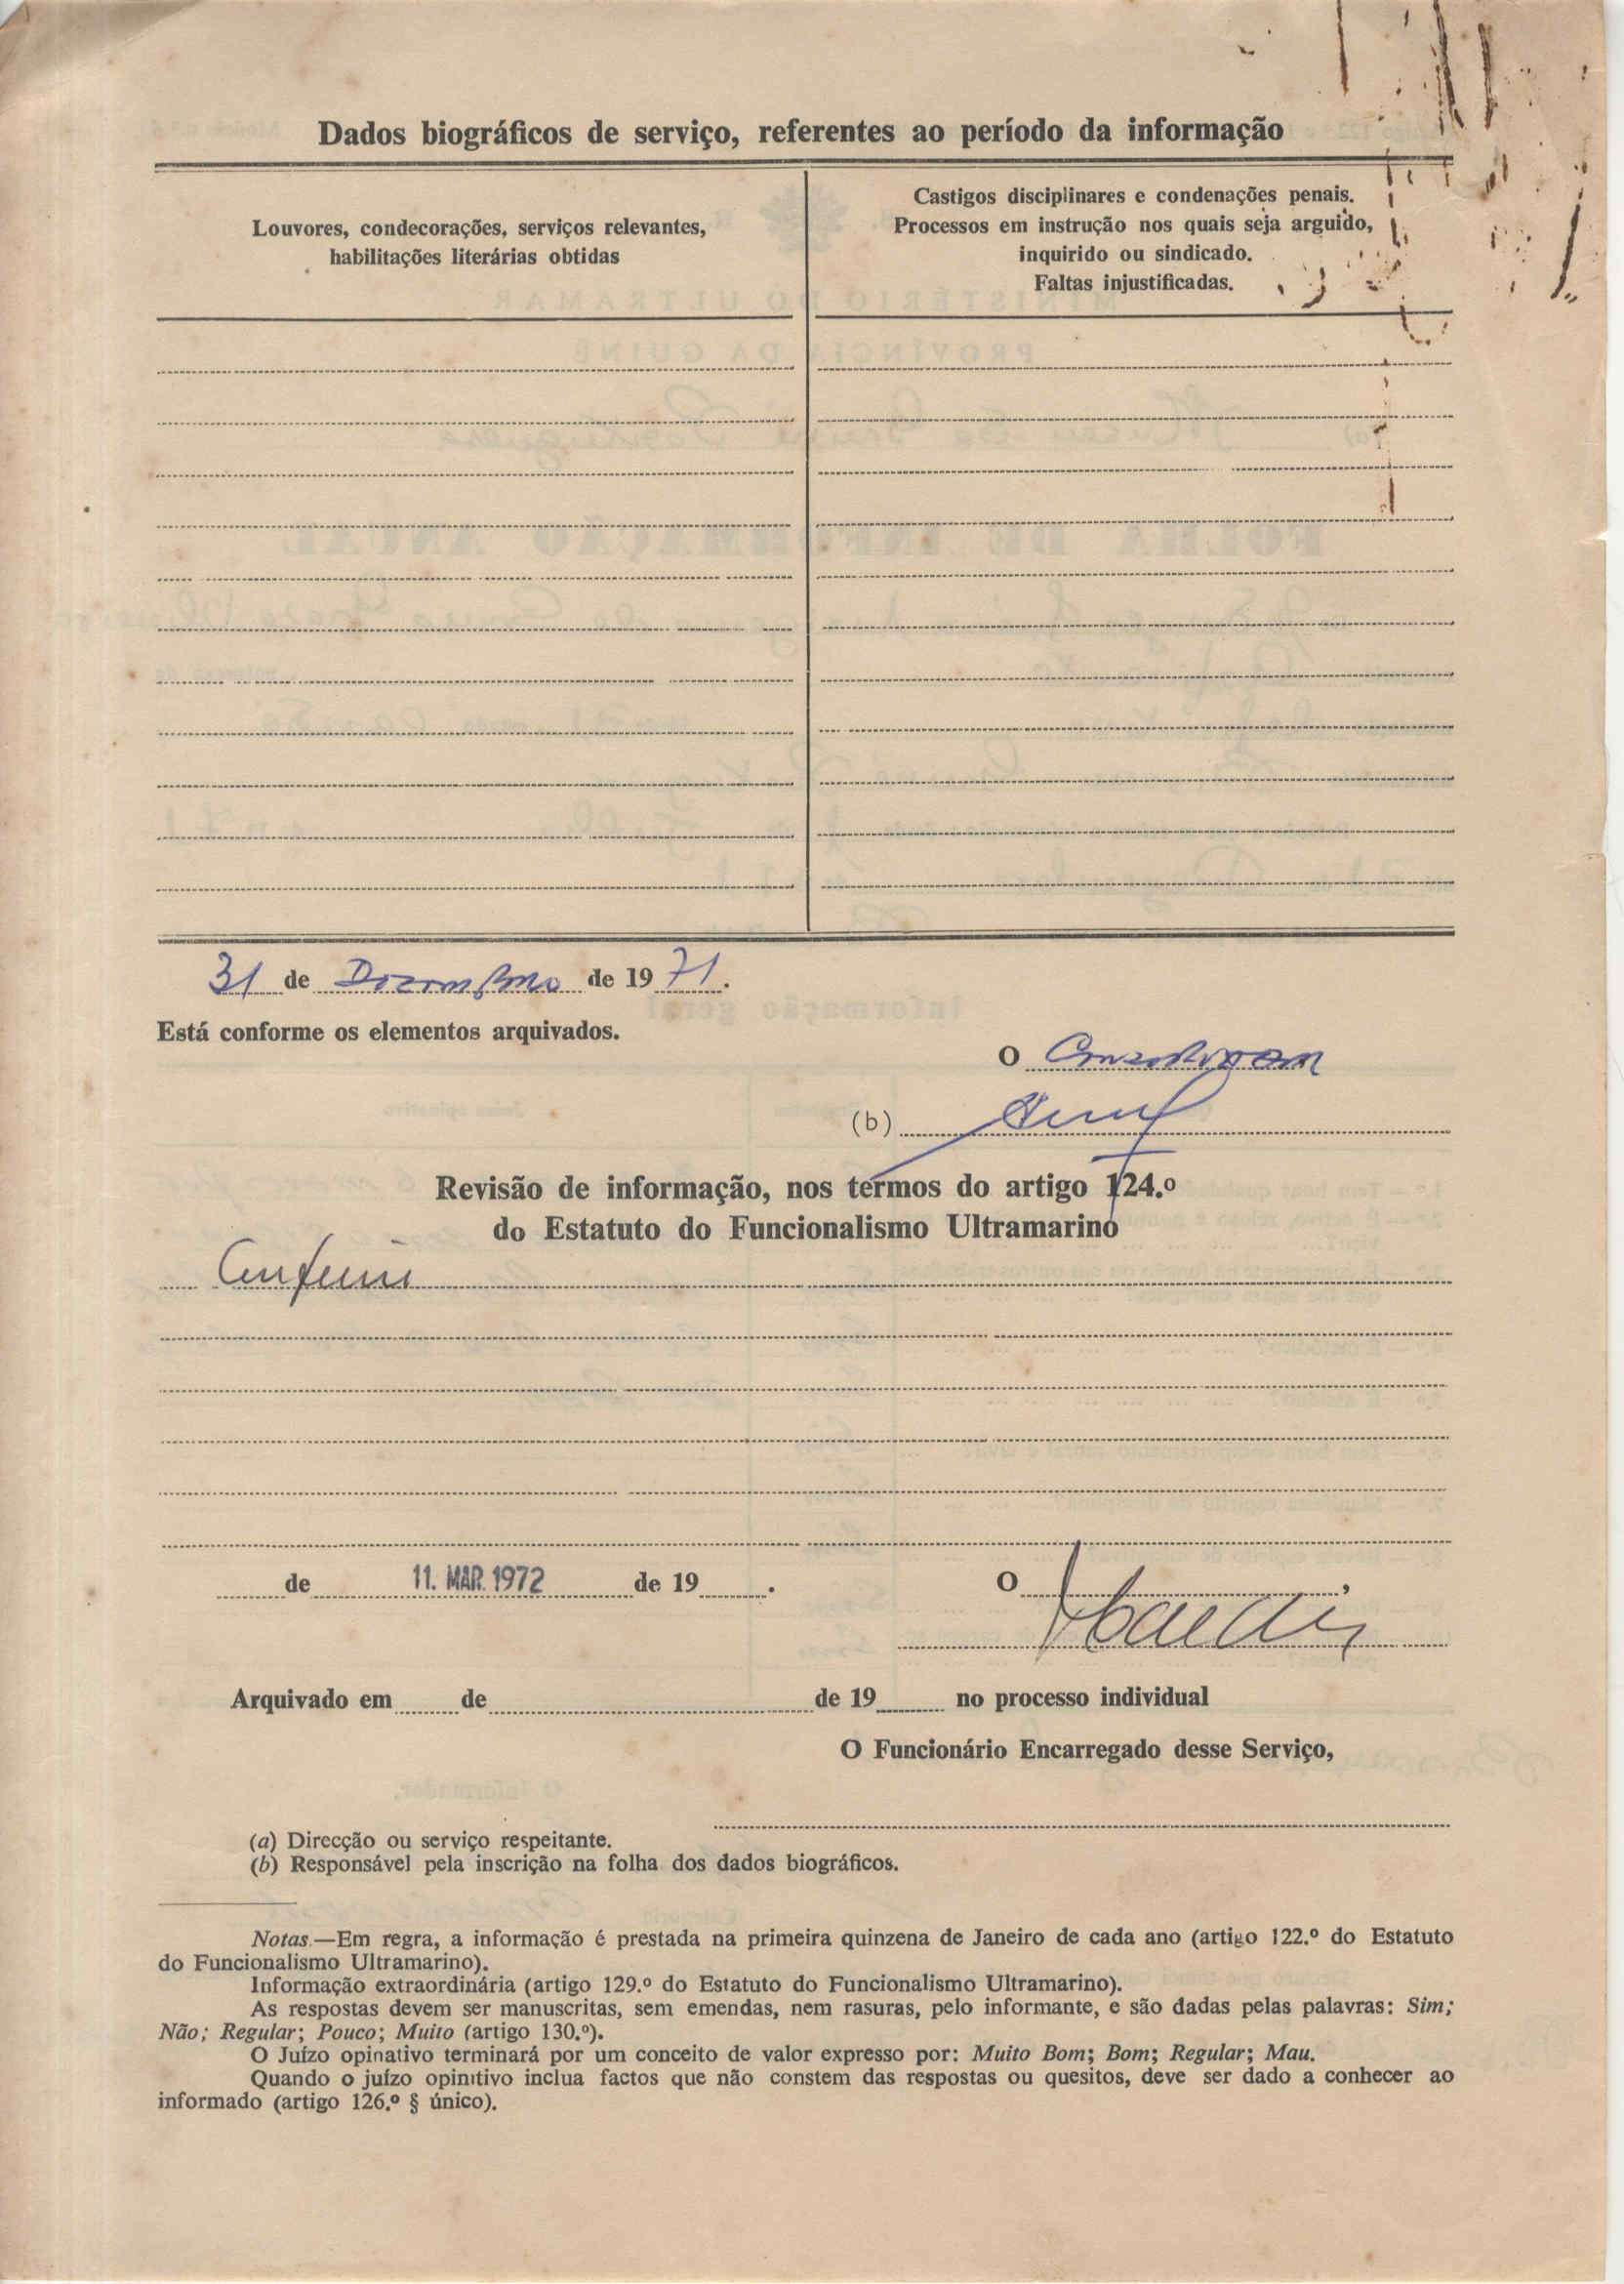 Dados biográficos de serviço, referentes ao período da informação
Louvores, condecorações, serviços relevantes,
habilitações literárias obtidas
Castigos disciplinares e condenações penais.
Processos em instrução nos quais seja arguido,
inquirido ou sindicado.
Faltas injustificadas.
31 de Dezembro de 1971.
Está conforme os elementos arquivados.
O Conservador
(b)
Revisão de informação, nos termos do artigo 124.º
do Estatuto do Funcionalismo Ultramarino
Confirmo
de 11. MAR. 1972 de 19 .
O ,
Arquivado em de de 19 no processo individual
O Funcionário Encarregado desse Serviço,
(a) Direcção ou serviço respeitante.
(b) Responsável pela inscrição na folha dos dados biográficos.
Notas.—Em regra, a informação é prestada na primeira quinzena de Janeiro de cada ano (artigo 122.º do Estatuto
do Funcionalismo Ultramarino).
Informação extraordinária (artigo 129.º do Estatuto do Funcionalismo Ultramarino).
As respostas devem ser manuscritas, sem emendas, nem rasuras, pelo informante, e são dadas pelas palavras: Sim;
Não; Regular; Pouco; Muito (artigo 130.º).
O Juízo opinativo terminará por um conceito de valor expresso por: Muito Bom; Bom; Regular; Mau.
Quando o juízo opinitivo inclua factos que não constem das respostas ou quesitos, deve ser dado a conhecer ao
informado (artigo 126.º § único).